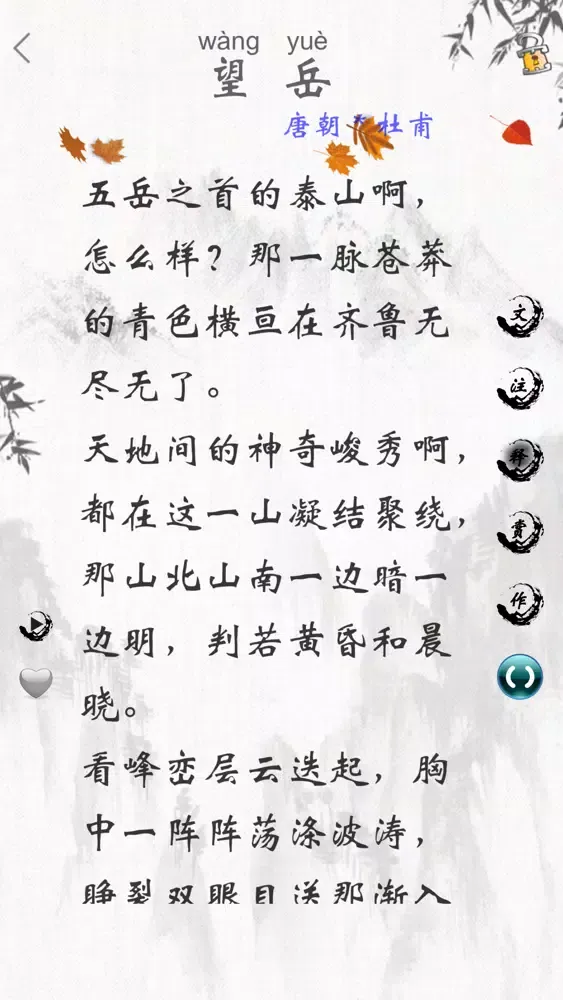 wàng yuè
望 岳
唐朝 杜甫
五岳之首的泰山啊，
怎么样？那一脉苍莽
的青色横亘在齐鲁无
尽无了。
天地间的神奇峻秀啊，
都在这一山凝结聚绕，
那山北山南一边暗一
边明，判若黄昏和晨
晓。
看峰峦层云迭起，胸
中一阵阵荡涤波涛，
睁裂双眼目送那渐入
文
注
释
赏
作